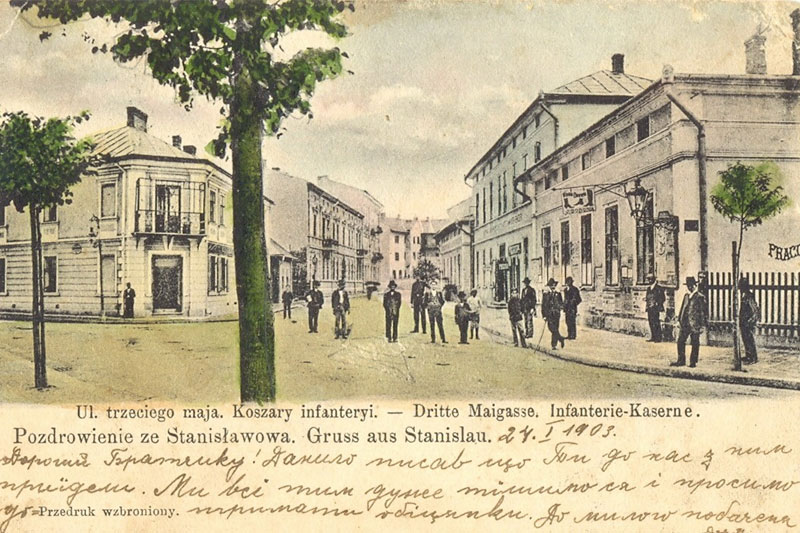 PRAC
Ul. trzeciego maja. Koszary infanteryi. — Dritte Maigasse. Infanterie-Kaserne.
Pozdrowienie ze Stanisławowa. Gruss aus Stanislau. 24. I 1903.
Дорогий Братчику! Данило писав що Ти до нас з ним
приїдеш. Ми всі тим дуже тішимося і просимо
до= Przedruk wzbroniony. тримати обіцянки. До милого побаченя